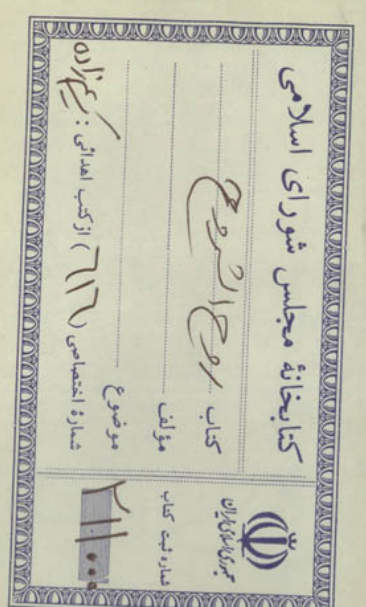 کتابخانهٔ مجلس شورای اسلامی
کتاب روح الشروح
مؤلف
موضوع
شمارهٔ اختصاصی (۶۱۶) از کتب اهدائی: کریم‌زاده
جمهوری اسلامی ایران
شماره ثبت کتاب